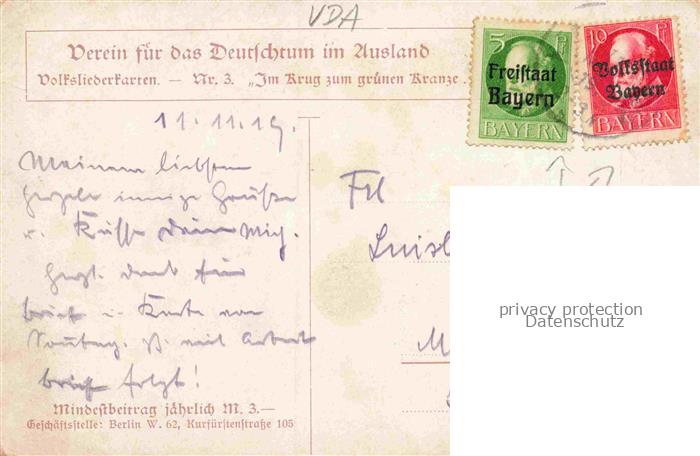 VDA
Verein für das Deutschtum im Ausland
Volksliederkarten. — Nr. 3. „Im Krug zum grünen Kranze.
5 Pf
Freistaat
Bayern
BAYERN
10 Pf
Volksstaat
Bayern
BAYERN
11.11.19.
Meinem liebsten
innige Grüße
u. Küsse Dein Mich.
Herzl. dank für
brief u. Karte von
Sonntag.
brief folgt!
Frl
Luis
M
Mindestbeitrag jährlich M. 3.—
Geschäftsstelle: Berlin W. 62, Kurfürstenstraße 105
privacy protection
Datenschutz